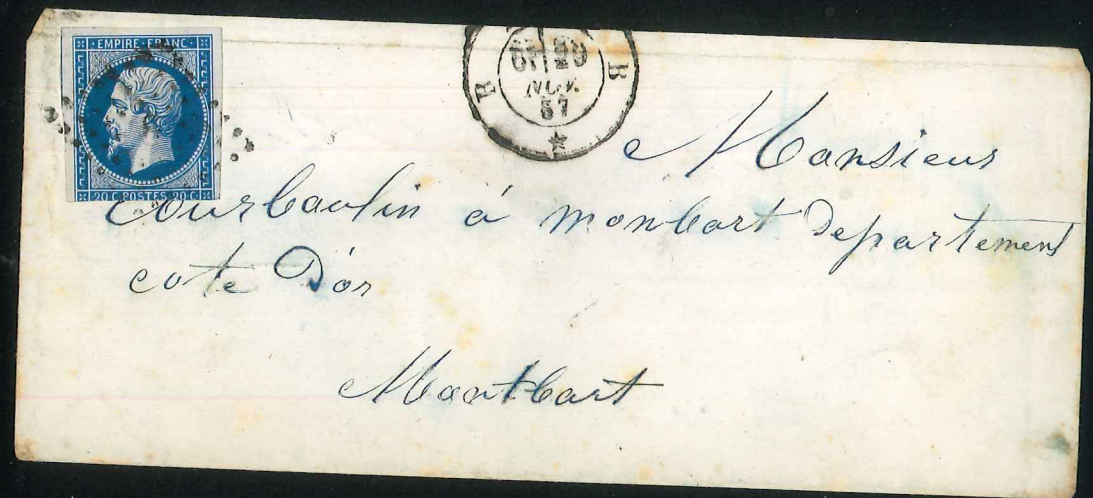 EMPIRE FRANC
20 C POSTES 20 C
B B
NOV.
57
Monsieur
Courbaulin à monbart Departement
cote D'or
Montbart